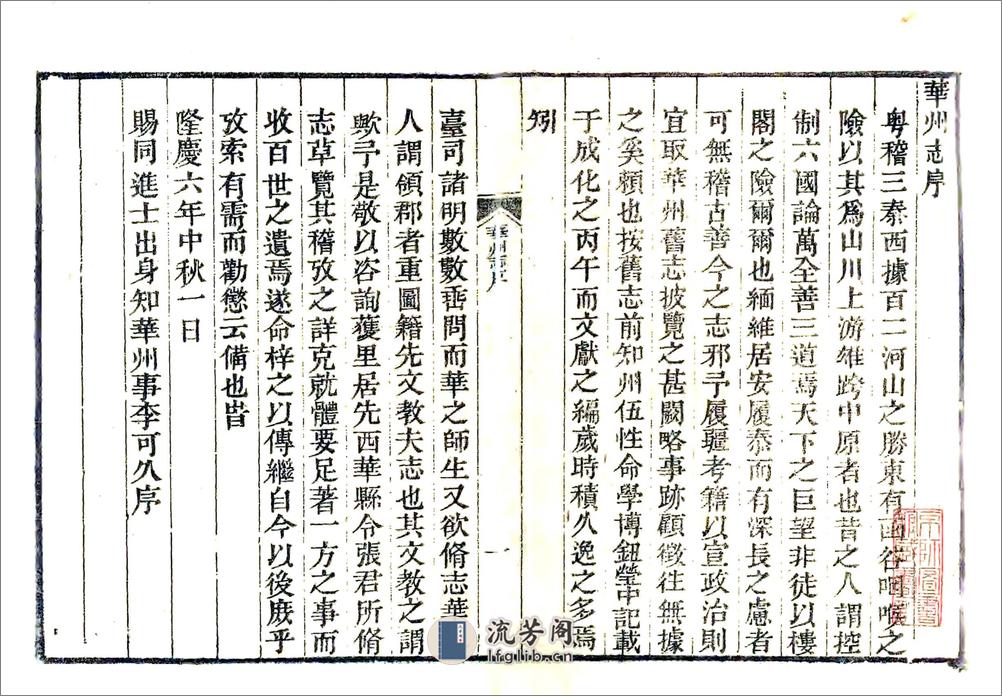 華州志序
粤稽三秦西據百二河山之勝東有函谷咽喉之
險以其爲山川上游維跨中原者也昔之人謂控
制六國論萬全善三道焉天下之巨望非徒以樓
閣之險爾爾也緬維居安履泰而有深長之慮者
可無稽古善今之志邪予履疆考籍以宣政治則
宜取華州舊志披覽之甚闕略事跡顧徵往無據
之奚頼也按舊志前知州伍性命學博鈕瑩中記載
于成化之丙午而文獻之編歲時積久逸之多焉
矧
華州志序
一
臺司諸明數數垂問而華之師生又欲脩志華
人謂領郡者重圖籍先文教夫志也其文教之謂
歟予是敬以咨詢獲里居先西華縣令張君所脩
志草覽其稽攷之詳克就體要足著一方之事而
收百世之遺焉遂命梓之以傳繼自今以後庶乎
攷索有需而勸懲云備也眥
隆慶六年中秋一日
賜同進士出身知華州事李可久序
流芳阁
lfglib.cn